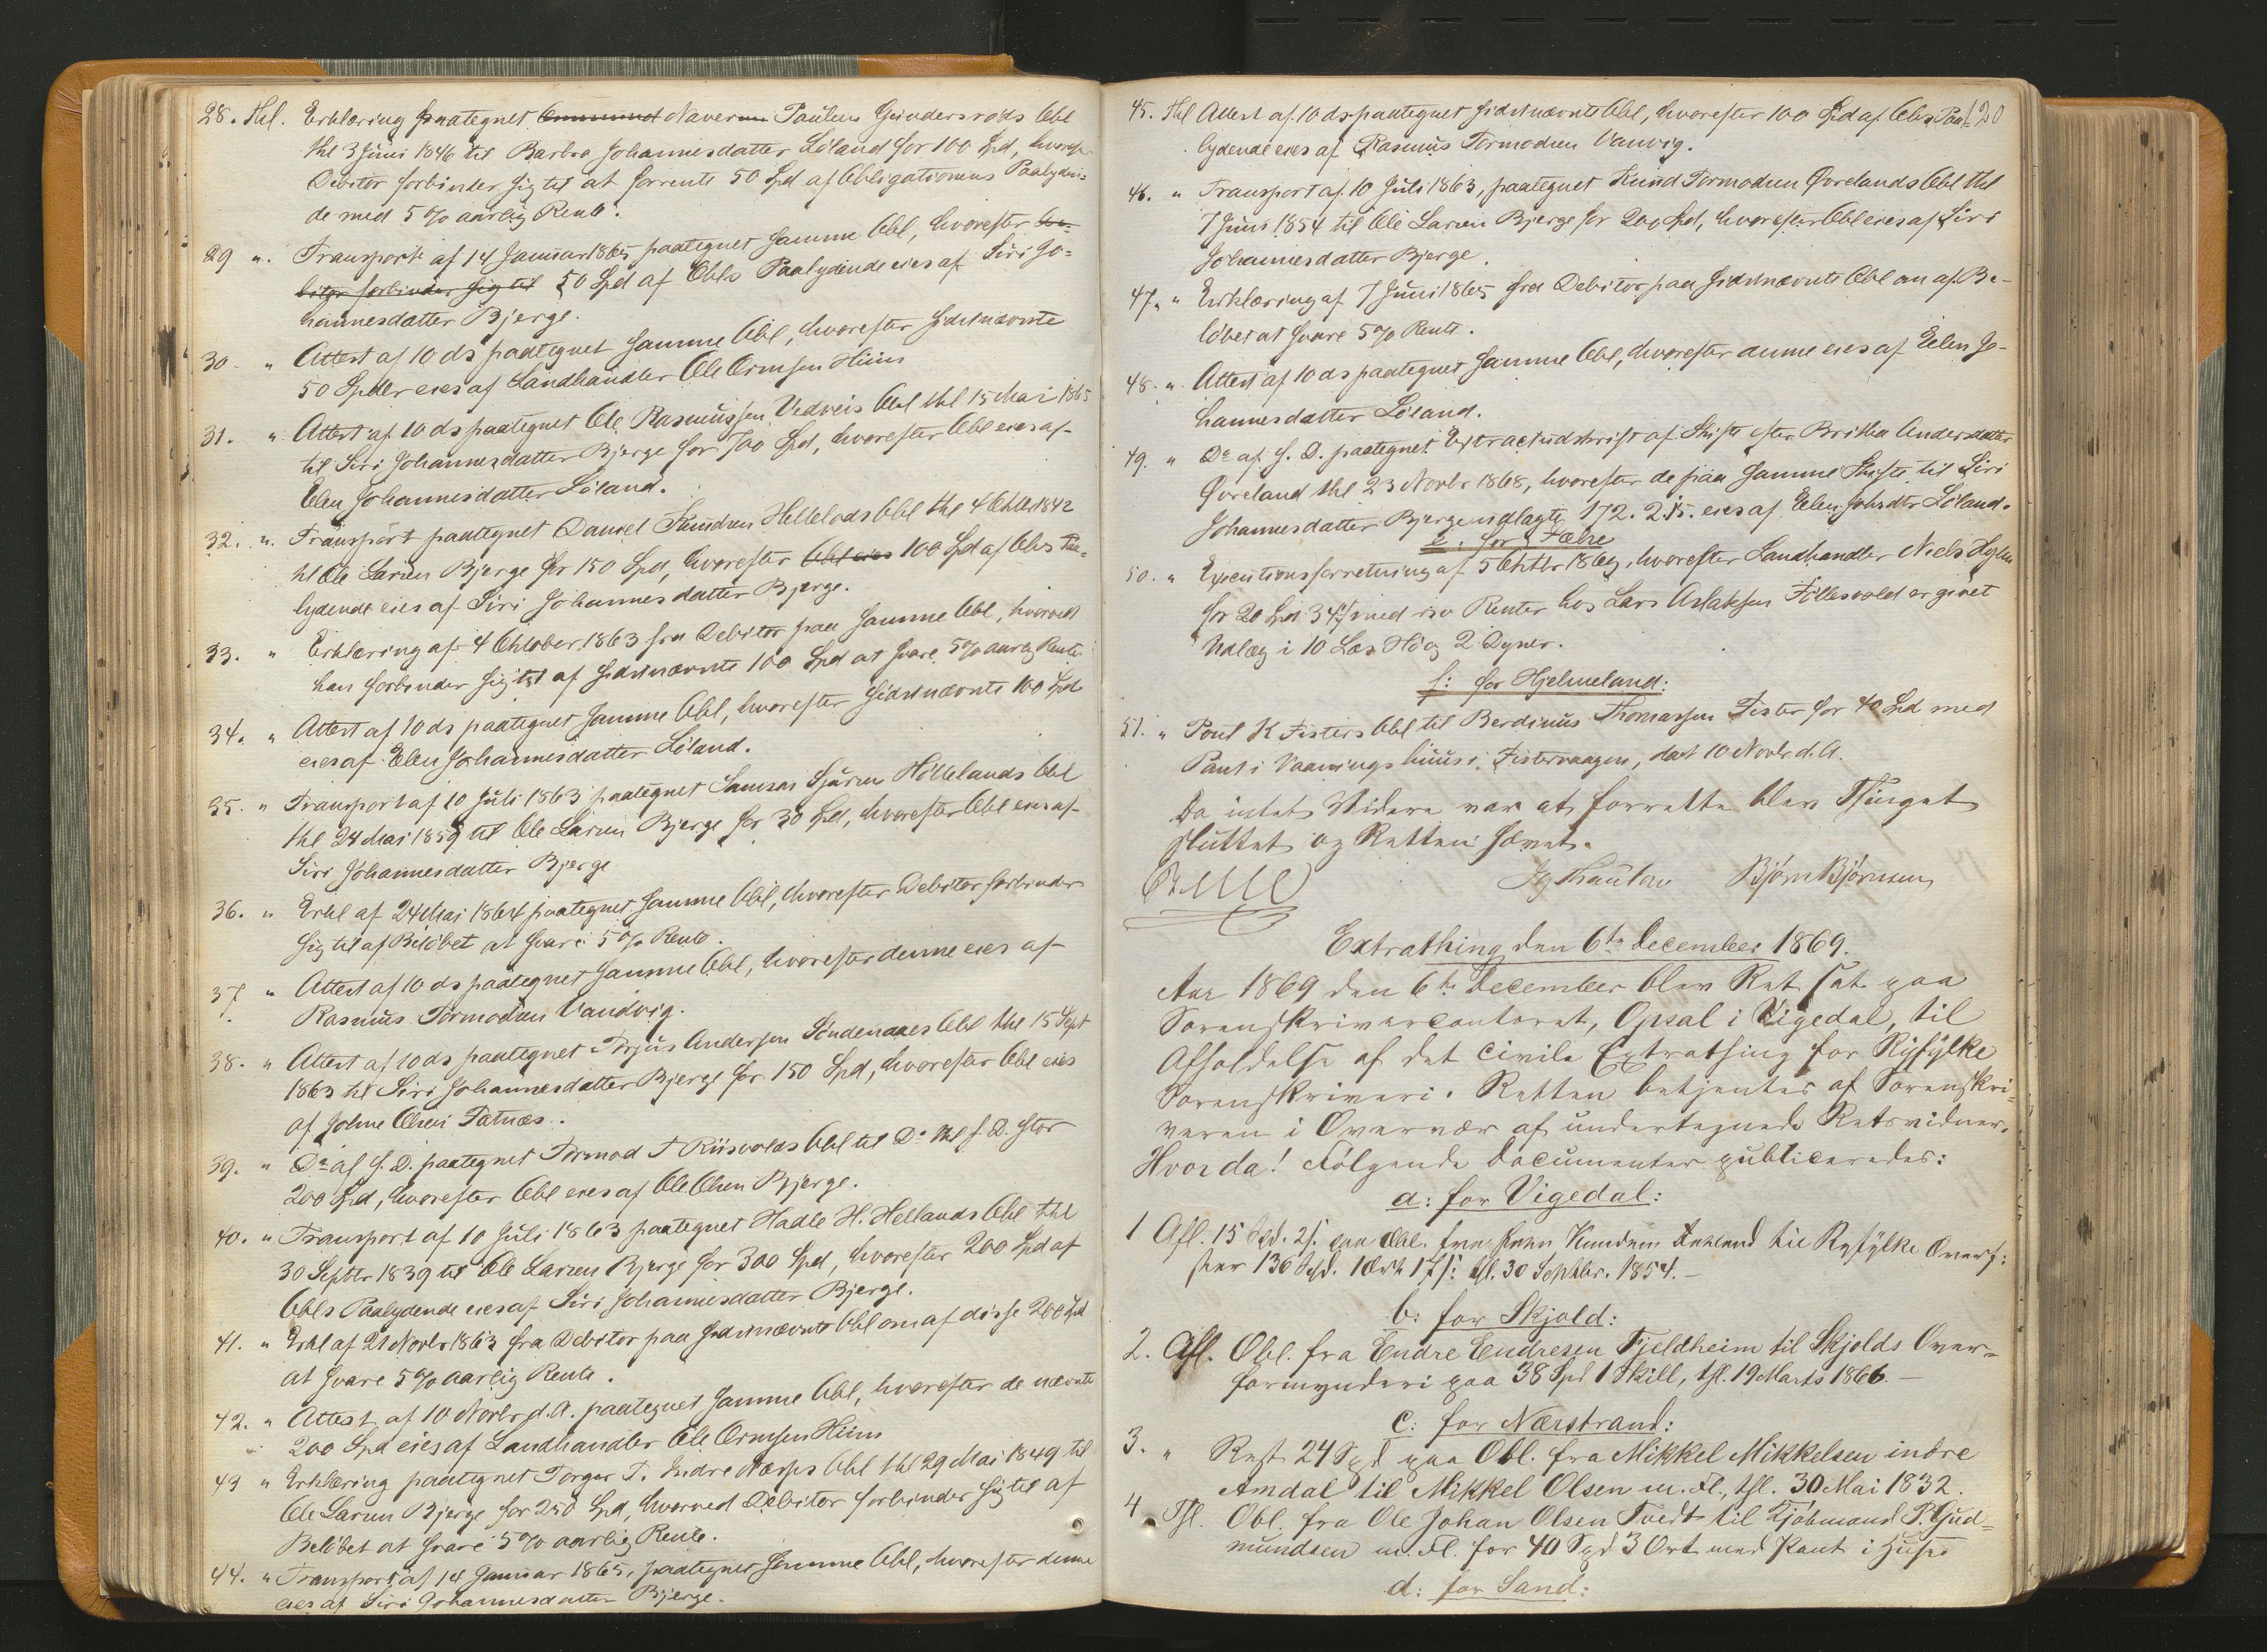 28. Thl. Erklæring paategnet Naver Paulsens Gundersrøds Obl
thl 3 Juni 1846 til Barbra Johannesdatter Løland for 100 Spd, hvorefter
Debitor forbinder sig til at forrente 50 Spd af Obligationens Paalyden-
de med 5 % aarlig Rente.
29 ". Transport af 14 Januar 1865 paategnet samme Obl, hvorefter De-
bitor forbinder sig til 50 Spd af Obls Paalydende eies af Siri Jo=
hannesdatter Bjerge.
30 - " Attest af 10 ds paategnet samme Obl, hvorefter sidstnævnte
50 Spdlr eies af Landhandler Ole Ormsen Hiim
31. " Attest af 10 ds paategnet Ole Rasmussen Vedveis Obl thl 15 Mai 1865
til Siri Johannesdatter Bjerge for 700 Spd, hvorefter Obl eies af
Elen Johannesdatter Løland.
32. ". Transport paategnet Daniel Knudsen Obl thl 4 Oktbr 1842
til Ole Larsen Bjerge for 150 Spd, hvorefter Obl eies 100 Spd af Obls Paa-
lydende eies af Siri Johannesdatter Bjerge.
33. " Erklæring af 4 Oktober 1863 fra Debitor paa samme Obl, hvorved
han forbinder sig til af sidstnævnte 100 Spd at svare 5 % aarlig Rente.
34. " Attest af 10 ds paategnet samme Obl, hvorefter sidstnævnte 100 Spd
eies af Elen Johannesdatter Løland.
35. " Transport af 10 Juli 1863 paategnet Samson Sjursen Høllelands Obl
thl 24 Mai 1859 til Ole Larsen Bjerge for 30 Spd, hvorefter Obl eies af
Siri Johannesdatter Bjerge
36. " Erkl af 24 Mai 1864 paategnet samme Obl, hvorefter Debitor forbinder
sig til af Beløbet at svare 5 % Rente.
37 " Attest af 10 ds paategnet samme Obl, hvorefter denne eies af
Rasmus Tormodsen Vandvig.
38. " Attest af 10 ds paategnet Torjus Andersen Søndenaaes Obl thl 15 Sept
1863 til Siri Johannesdatter Bjerge for 150 Spd, hvorefter Obl eies
af Johne Olsen Tatnæs.
39. " Do af s. D. paategnet Tormod T Riisvolds Obl til Do thl s. D. stor
200 Spd, hvorefter Obl eies af Ole Olsen Bjerge.
40. " Transport af 10 Juli 1863 paategnet Hadle H. Hellands Obl thl
30 Septbr 1839 til Ole Larsen Bjerge for 300 Spd, hvorefter 200 Spd af
Obls Paalydende eies af Siri Johannesdatter Bjerge.
41. " Erkl af 21 Novbr 1863 fra Debitor paa sidstnævnte Obl om af disse 200 Spd
at svare 5 % aarlig Rente.
42. " Attest af 10 Novbr d. A. paategnet samme Obl, hvorefter de nævnte
200 Spd eies af Landhandler Ole Ormsen Hiim
43 " Erklæring paategnet Torger T. Indre Næsses Obl thl 29 Mai 1849 til
Ole Larsen Bjerge for 250 Spd, hvorved Debitor forbinder sig til af
Beløbet at svare 5 % aarlig Rente.
44. " Transport af 14 Januar 1865, paategnet samme Obl, hvorefter denne
eies af Siri Johannesdatter Bjerge.
120
45. Thl Attest af 10 ds paategnet sidstnævnte Obl, hvorefter 100 Spd af Obls Paa=
lydende eies af Rasmus Tormodsen Vanvig.
46. " Transport af 10 Juli 1863, paategnet Knud Tormodsen Øvrelands Obl thl
7 Juni 1854 til Ole Larsen Bjerge for 200 Spd, hvorefter Obl eies af Siri
Johannesdatter Bjerge.
47. " Erklæring af 7 Juni 1865 fra Debitor paa sidstnævnte Obl om af Be-
løbet at svare 5 % Rente.
48. ". Attest af 10 ds paategnet samme Obl, hvorefter denne eies af Elen Jo-
hannesdatter Løland.
49. " Do af s. D. paategnet Extractudskrift af Skifte efter Britha Andersdatter
Øvreland thl 23 Novbr 1868, hvorefter de paa samme Skifte til Siri
Johannesdatter Bjerge udlagte 172. 2. 15. eies af Elen Johsdtr Løland.
e. for Jælse
50. " Executionsforretning af 5 Oktbr 1869, hvorefter Landhandler Niels
for 20 Spd 34 s med Renter hos Lars Aslaksen er givet
Udlæg i 10 Læs Hø og 2 Dyner.
f: for Hjelmeland:
51. " Poul K Fisters Obl til Berdinus Thomassen Fister for 40 Spd med
Pant i Vaaningshuus i Fistervaagen, dat 10 Novbr d. A.
Da intet Videre var at forrette blev Thinget
sluttet og Retten hævet.
Bjørn Bjørnsen
Extrathing den 6te December 1869.
Aar 1869 den 6te December blev Ret sat paa
Sorenskrivercontoret, Opsal i Vigedal, til
Afholdelse af det civile Extrathing for Ryfylke
Sorenskriveri. Retten betjentes af Sorenskri=
veren i Overvær af undertegnede Retsvidner.
Hvorda! Følgende Documenter publiceredes:
a: for Vigedal:
1 Afl. 15 Spd. 2 s. paa Obl. fra Knudsen til Ryfylke Overf:
stor 130 Spd. 1 Ort 17 s: thl. 30 Septbr. 1854. -
b: for Skjold:
2. Afl. Obl. fra Endre Endresen Fjeldheim til Skjolds Over=
formynderi paa 38 Spd 1 Skill, thl. 19 Marts 1866. -
c: for Nærstrand:
3. " Rest 24 Spd paa Obl. fra Mikkel Mikkelsen indre
Amdal til Mikkel Olsen m. Fl., thl. 30 Mai 1832.
4 Thl. Obl. fra Ole Johan Olsen Tvedt til Kjøbmand P. Gud=
mundsen m. Fl. for 40 Spd 3 Ort med Pant i Huse
d: for Sand: